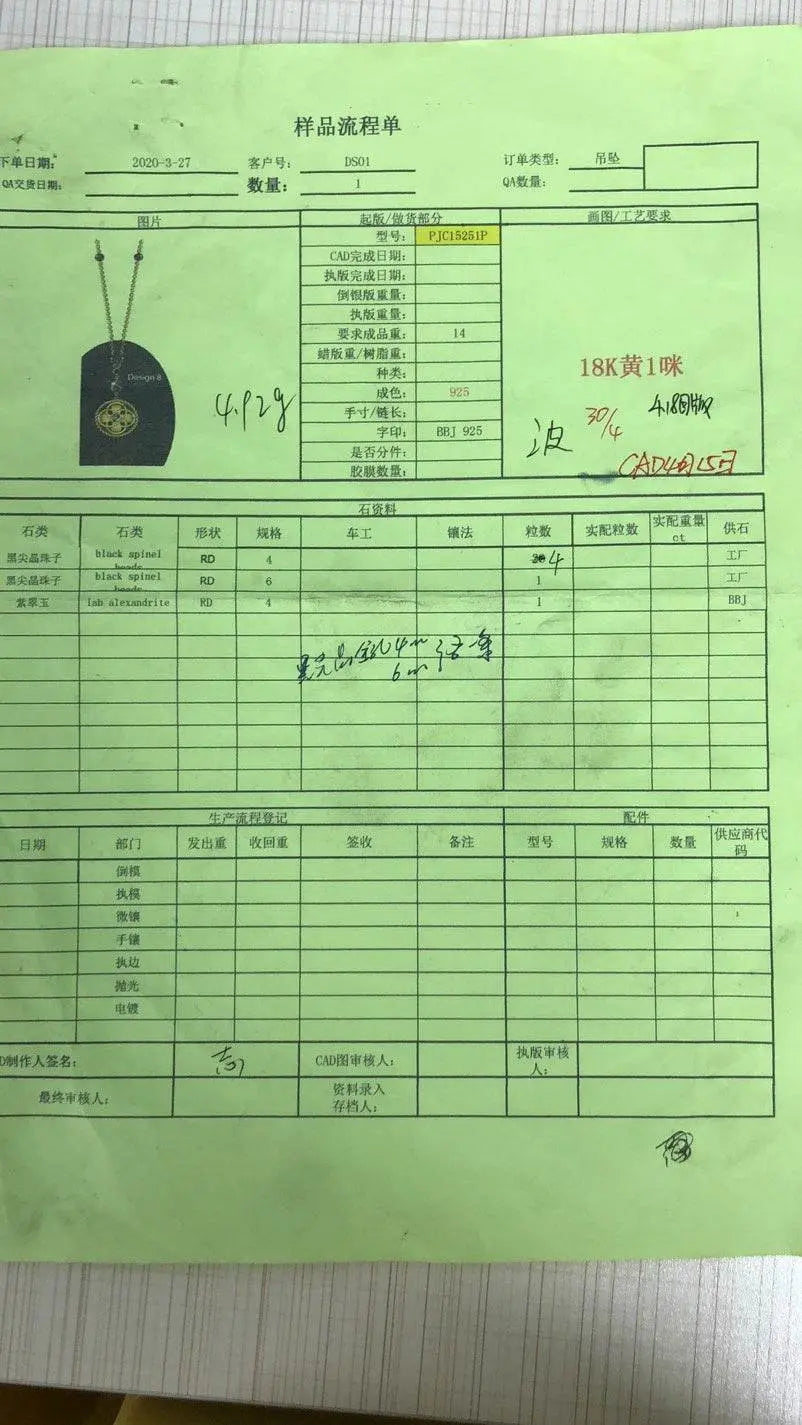 样品流程单
下单日期： 2020-3-27 客户号： DS01 订单类型： 吊坠
QA交货日期： 数量： 1 QA数量：
图片 起版/做货部分 画图/工艺要求
型号： PJC15251P
CAD完成日期：
执版完成日期：
倒银版重量：
执版重量：
要求成品重： 14
蜡版重/树脂重：
种类：
成色： 925
手寸/链长：
字印： BBJ 925
是否分件：
胶膜数量：
Design 8
4.92g
18K黄1咪
波 30/4 4.18
CAD4月15日
石资料
石类 石类 形状 规格 车工 镶法 粒数 实配粒数 实配重量ct 供石
黑尖晶珠子 black spinel beads RD 4 4 工厂
黑尖晶珠子 black spinel beads RD 6 1 工厂
紫翠玉 lab alexandrite RD 4 1 BBJ
4m
6m
生产流程登记 配件
日期 部门 发出重 收回重 签收 备注 型号 规格 数量 供应商代码
倒模
执模
微镶
手镶
执边
抛光
电镀
D制作人签名： CAD图审核人： 执版审核人：
最终审核人： 资料录入存档人：